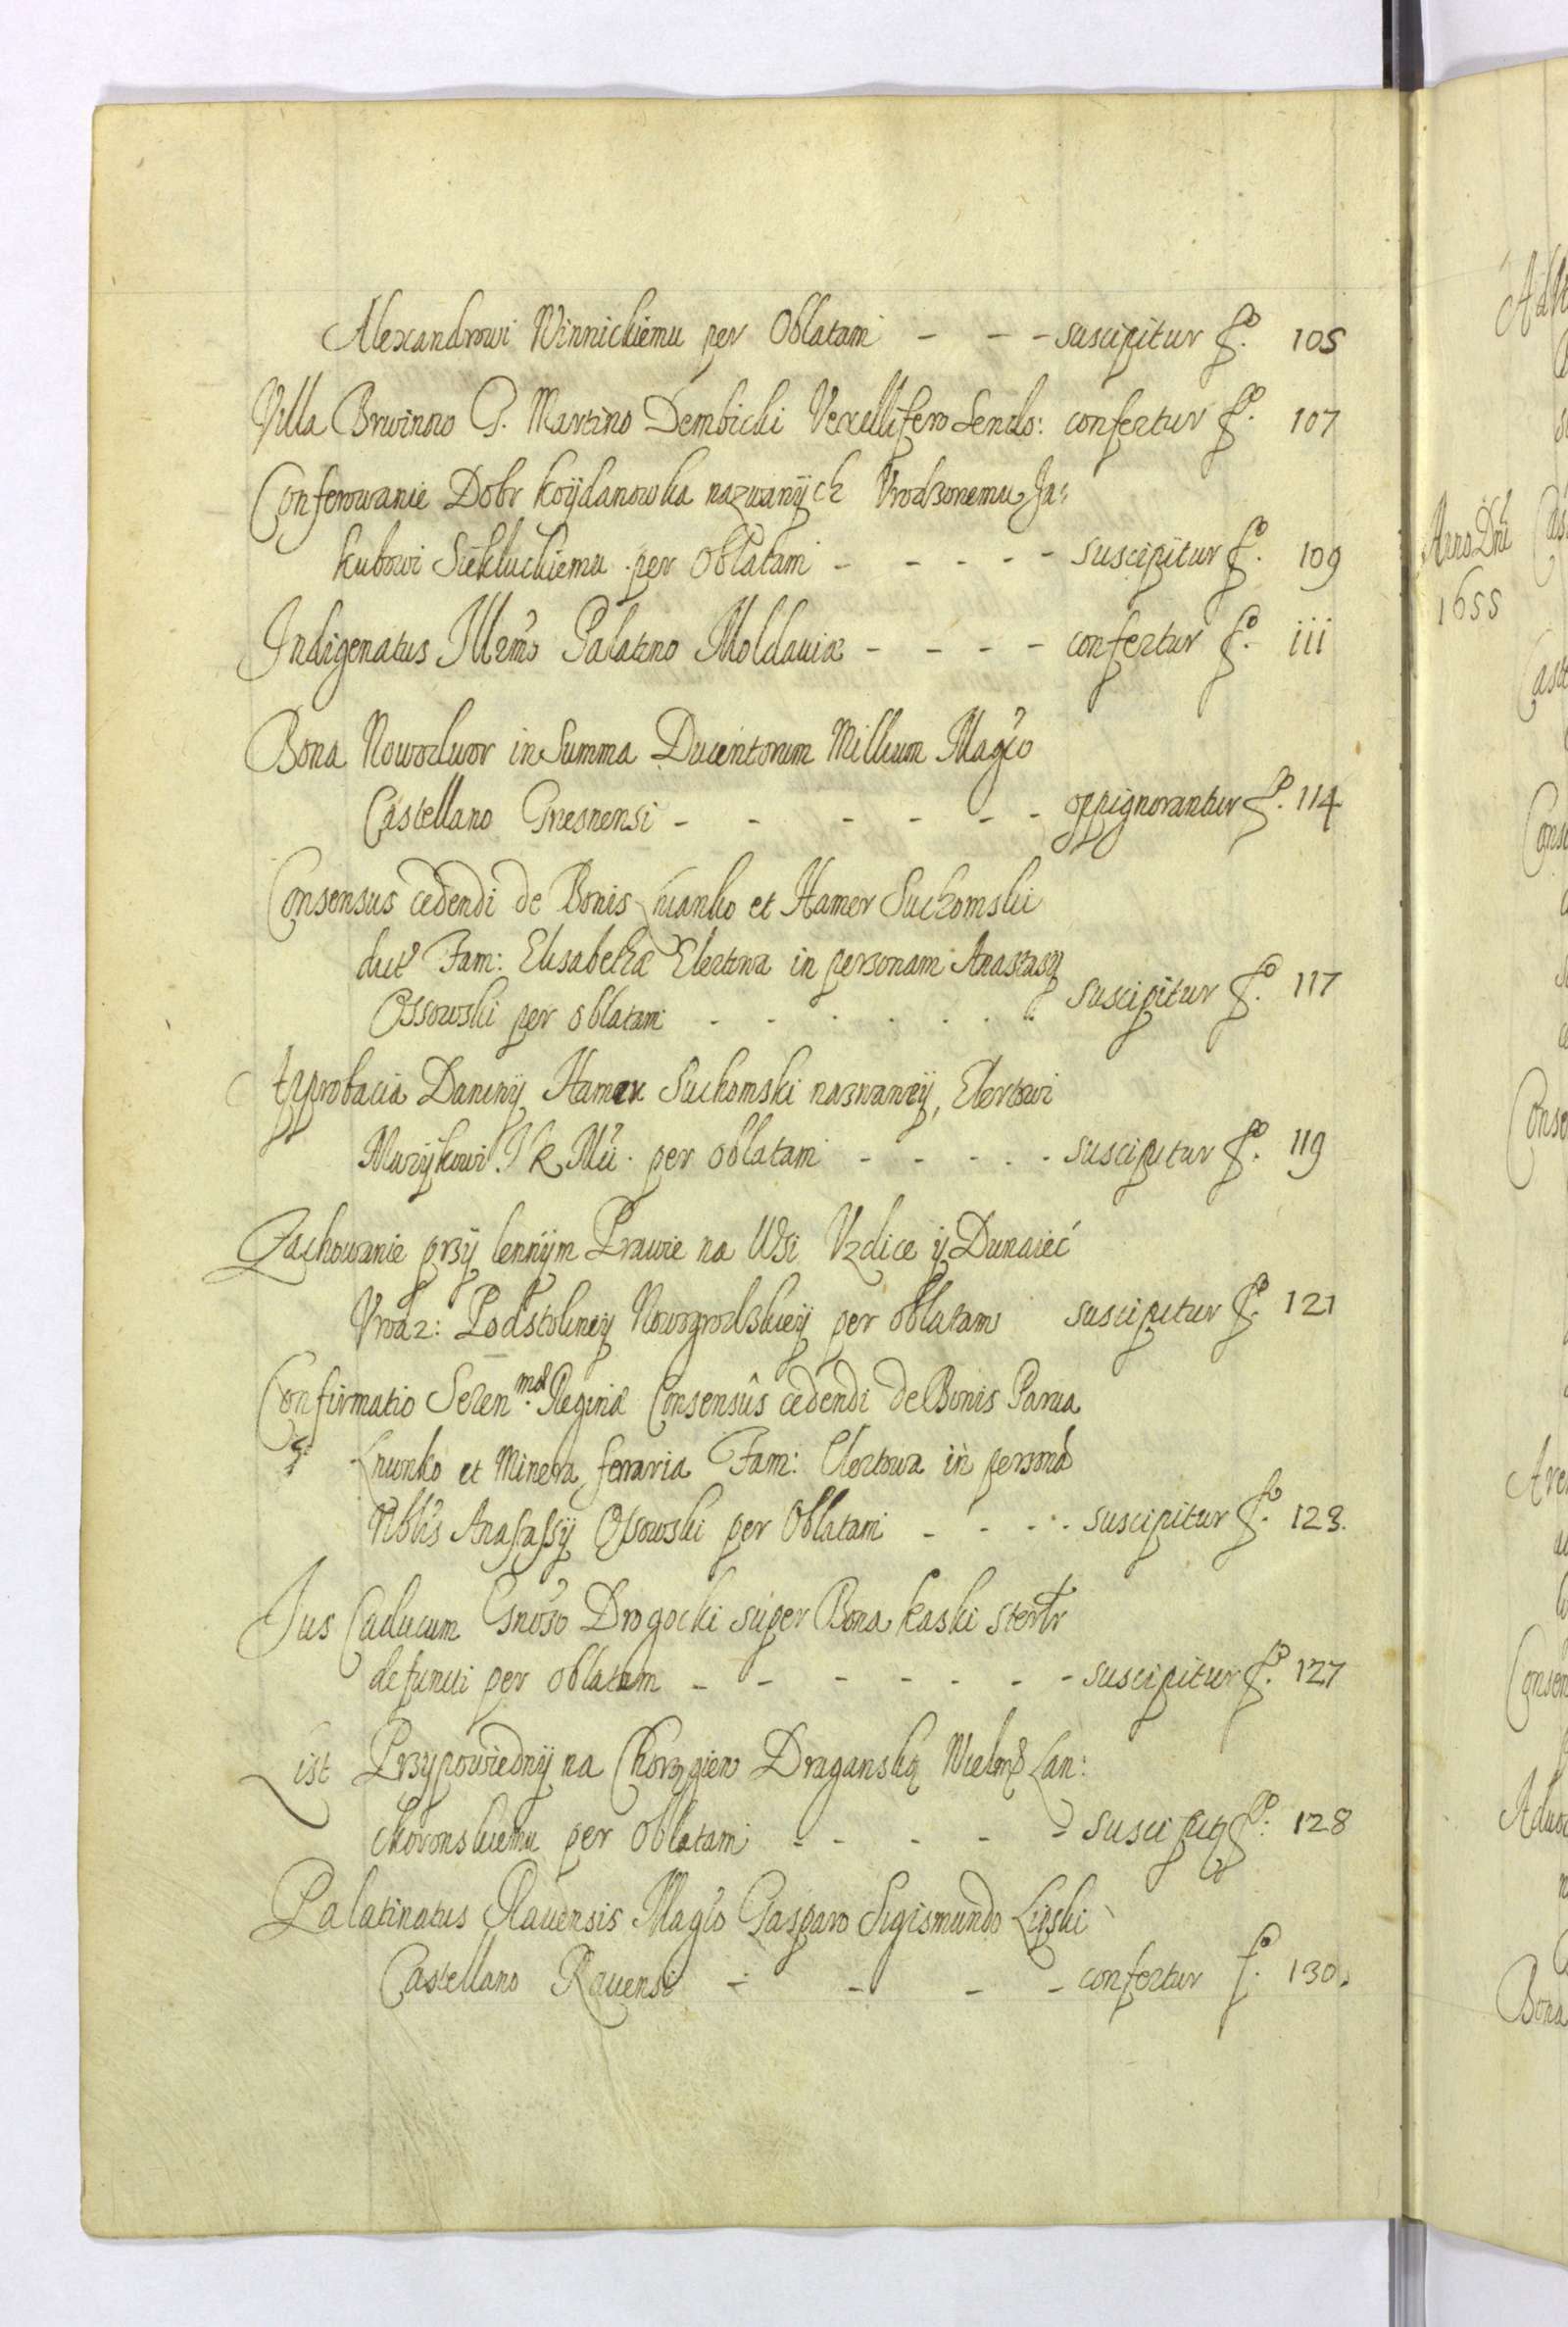 Alexandrowi Winnickiemu per Oblatam - - - suscipitur fo. 105
Villa Brwinow G. Martino Dembicki Vexillifero Sends: confertur fo. 107
Conferowanie Dobr Koÿdanowka nazwanÿch Vrodzonemu Ja:
kubowi Siekluckiemu per Oblatam - - - - - suscipitur fo. 109
Indigenatus Illrmo Palatino Moldauiæ - - - - confertur fo. iii
Bona Nowodwor in Summa Ducentorum Millium Magco
Castellano Gnesnensi - - - - - - oppignorantur fo. 114
Consensus cedendi de Bonis et Hamer Suchomski
Fam: Elisabethæ Elertowa in personam Anastasy
Ossowski per oblatam - - - - - - suscipitur fo. 117
Approbacia Daninÿ Hamer Suchomski nazwaneÿ, Elertowi
Muzÿkowi J K Mci. per oblatam - - - - - suscipitur fo. 119
Zachowanie przÿ lennÿm Prawie na Wsi Vzdice ÿ Dunaieć
Vrodz: Podstolineÿ Nowogrodzkieÿ per oblatam suscipitur fo. 121
Confirmatio Seren.mæ Reginæ Consensûs cedendi de Bonis Parua
et Minera ferraria Fam: Elertowa in personã
Nblis Anastassÿ Ossowski per Oblatam - - - - suscipitur fo. 123.
Jus Caducum Gnoso Drogocki super Bona Kaski
defuncti per oblatam - - - - - - - suscipitur fo. 127
List Przypowiednÿ na Chorągiew Draganską Wielmo Lan:
ckoronskiemu per Oblatam - - - - - suscipitr fo: 128
Palatinatus Rauensis Magco Gasparo Sigismundo Lipski
Castellano Rauensi - - - - confertur fo. 130.
Anno Dni
1655